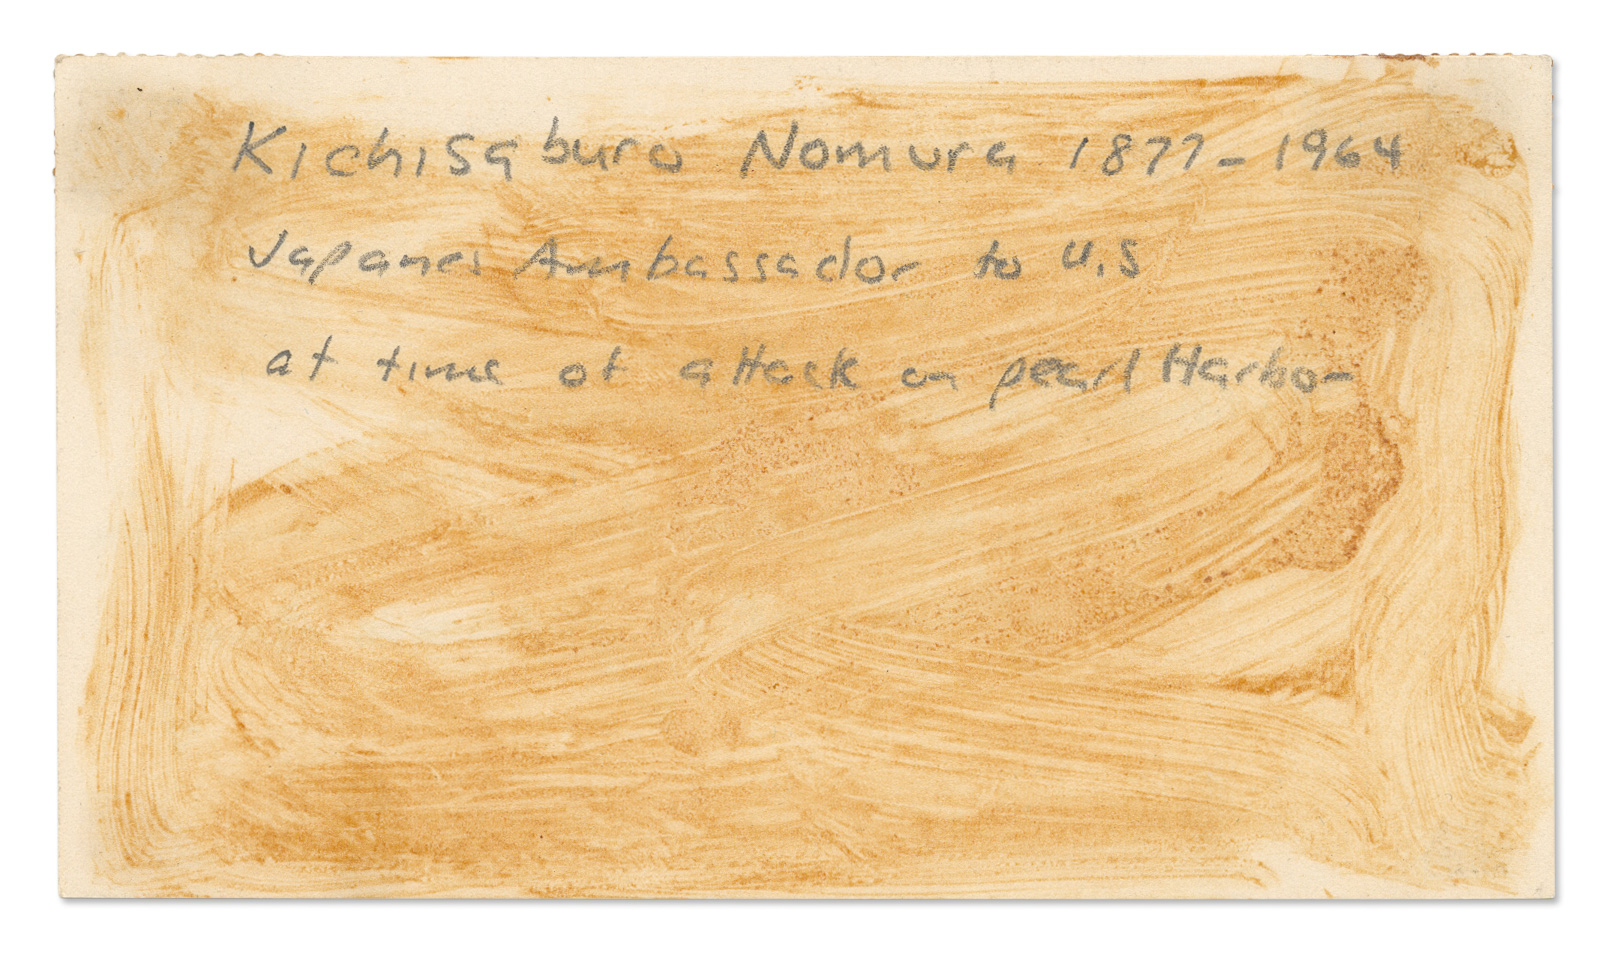 Kichisaburo Nomura 1877-1964
Japanes Ambassador to U.S
at time of attack on pearl Harbor